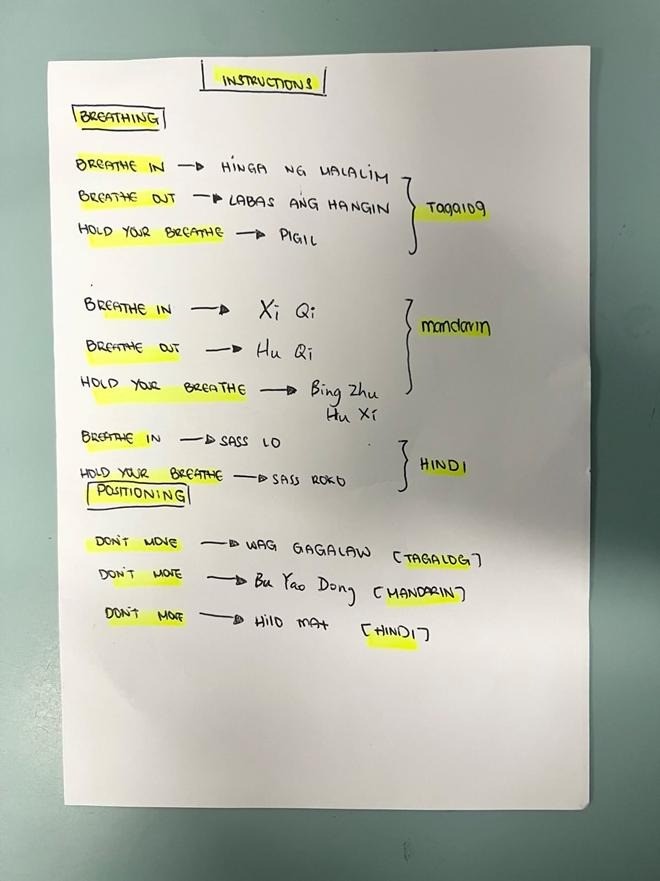 INSTRUCTIONS
BREATHING
BREATHE IN → HINGA NG MALALIM
BREATHE OUT → LABAS ANG HANGIN
Tagalog
HOLD YOUR BREATHE → PIGIL
BREATHE IN → Xi Qi
mandarin
BREATHE OUT → Hu Qi
HOLD YOUR BREATHE → Bing Zhu
Hu Xi
BREATHE IN → SASS LO
HINDI
HOLD YOUR BREATHE → SASS ROKO
POSITIONING
DON'T MOVE → WAG GAGALAW [TAGALOG]
DON'T MOVE → Bu Yao Dong [MANDARIN]
DON'T MOVE → HILO MAT [HINDI]